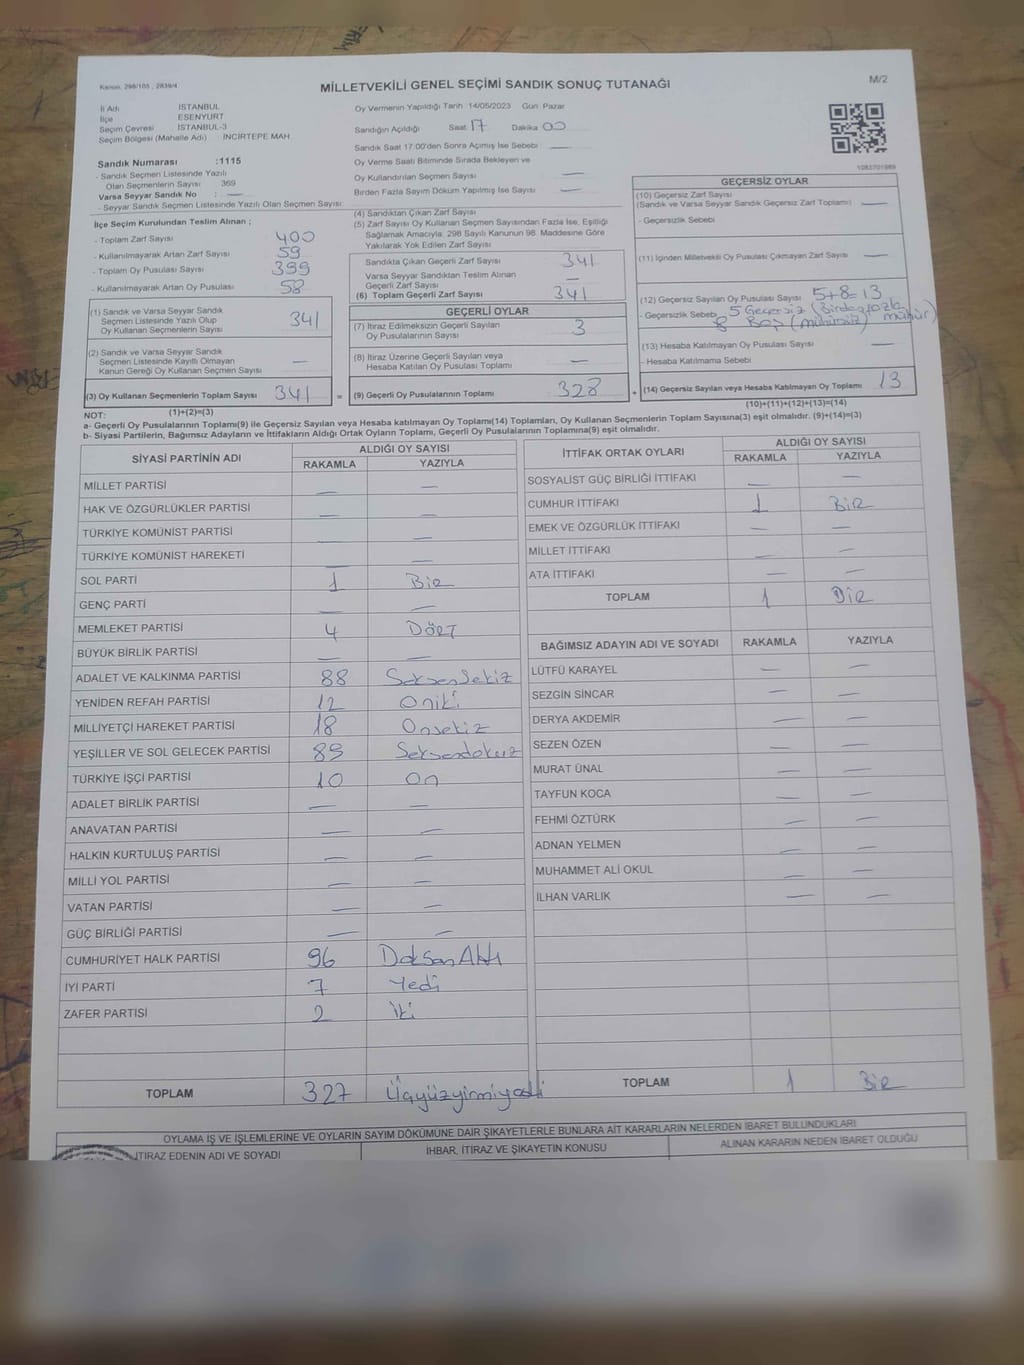 Kanun, 298/105 , 2839/4
MİLLETVEKİLİ GENEL SEÇİMİ SANDIK SONUÇ TUTANAĞI
M/2
İl Adı İSTANBUL
İlçe ESENYURT
Seçim Çevresi İSTANBUL-3
Seçim Bölgesi (Mahalle Adı) : İNCİRTEPE MAH.
Sandık Numarası :1115
- Sandık Seçmen Listesinde Yazılı
Olan Seçmenlerin Sayısı 369
Varsa Seyyar Sandık No : —
- Seyyar Sandık Seçmen Listesinde Yazılı Olan Seçmen Sayısı:
Oy Vermenin Yapıldığı Tarih :14/05/2023 Gün: Pazar
Sandığın Açıldığı Saat 17 Dakika 00
Sandık Saat 17:00'den Sonra Açılmış İse Sebebi : —
Oy Verme Saati Bitiminde Sırada Bekleyen ve
Oy Kullandırılan Seçmen Sayısı —
Birden Fazla Sayım Döküm Yapılmış İse Sayısı —
1083701989
İlçe Seçim Kurulundan Teslim Alınan ;
- Toplam Zarf Sayısı 400
- Kullanılmayarak Artan Zarf Sayısı 59
- Toplam Oy Pusulası Sayısı 399
- Kullanılmayarak Artan Oy Pusulası 58
(1) Sandık ve Varsa Seyyar Sandık
Seçmen Listesinde Yazılı Olup
Oy Kullanan Seçmenlerin Sayısı 341
(2) Sandık ve Varsa Seyyar Sandık
Seçmen Listesinde Kayıtlı Olmayan
Kanun Gereği Oy Kullanan Seçmen Sayısı —
(3) Oy Kullanan Seçmenlerin Toplam Sayısı 341 =
(1)+(2)=(3)
(4) Sandıktan Çıkan Zarf Sayısı
(5) Zarf Sayısı Oy Kullanan Seçmen Sayısından Fazla İse, Eşitliği
Sağlamak Amacıyla, 298 Sayılı Kanunun 98. Maddesine Göre
Yakılarak Yok Edilen Zarf Sayısı
Sandıkta Çıkan Geçerli Zarf Sayısı 341
Varsa Seyyar Sandıktan Teslim Alınan
Geçerli Zarf Sayısı —
(6) Toplam Geçerli Zarf Sayısı 341
GEÇERLİ OYLAR
(7) İtiraz Edilmeksizin Geçerli Sayılan
Oy Pusulalarının Sayısı 3
(8) İtiraz Üzerine Geçerli Sayılan veya
Hesaba Katılan Oy Pusulası Toplamı —
(9) Geçerli Oy Pusulalarının Toplamı 328 +
GEÇERSİZ OYLAR
(10) Geçersiz Zarf Sayısı
(Sandık ve Varsa Seyyar Sandık Geçersiz Zarf Toplamı) —
- Geçersizlik Sebebi
(11) İçinden Milletvekili Oy Pusulası Çıkmayan Zarf Sayısı —
(12) Geçersiz Sayılan Oy Pusulası Sayısı 5+8=13
- Geçersizlik Sebebi 5 Geçersiz (Birden fazla mühür)
8 Boş (mühürsüz)
(13) Hesaba Katılmayan Oy Pusulası Sayısı —
- Hesaba Katılmama Sebebi
(14) Geçersiz Sayılan veya Hesaba Katılmayan Oy Toplamı 13
(10)+(11)+(12)+(13)=(14)
NOT:
a- Geçerli Oy Pusulalarının Toplamı(9) ile Geçersiz Sayılan veya Hesaba katılmayan Oy Toplamı(14) Toplamları, Oy Kullanan Seçmenlerin Toplam Sayısına(3) eşit olmalıdır. (9)+(14)=(3)
b- Siyasi Partilerin, Bağımsız Adayların ve İttifakların Aldığı Ortak Oyların Toplamı, Geçerli Oy Pusulalarının Toplamına(9) eşit olmalıdır.
SİYASİ PARTİNİN ADI ALDIĞI OY SAYISI
RAKAMLA YAZIYLA
MİLLET PARTİSİ — —
HAK VE ÖZGÜRLÜKLER PARTİSİ — —
TÜRKİYE KOMÜNİST PARTİSİ — —
TÜRKİYE KOMÜNİST HAREKETİ — —
SOL PARTİ 1 Bir
GENÇ PARTİ — —
MEMLEKET PARTİSİ 4 Dört
BÜYÜK BİRLİK PARTİSİ — —
ADALET VE KALKINMA PARTİSİ 88 Seksensekiz
YENİDEN REFAH PARTİSİ 12 Oniki
MİLLİYETÇİ HAREKET PARTİSİ 18 Onsekiz
YEŞİLLER VE SOL GELECEK PARTİSİ 89 Seksendokuz
TÜRKİYE İŞÇİ PARTİSİ 10 On
ADALET BİRLİK PARTİSİ — —
ANAVATAN PARTİSİ — —
HALKIN KURTULUŞ PARTİSİ — —
MİLLİ YOL PARTİSİ — —
VATAN PARTİSİ — —
GÜÇ BİRLİĞİ PARTİSİ — —
CUMHURİYET HALK PARTİSİ 96 Doksan Altı
İYİ PARTİ 7 Yedi
ZAFER PARTİSİ 2 İki
TOPLAM 327 Üçyüzyirmiyedi
İTTİFAK ORTAK OYLARI ALDIĞI OY SAYISI
RAKAMLA YAZIYLA
SOSYALİST GÜÇ BİRLİĞİ İTTİFAKI — —
CUMHUR İTTİFAKI 1 Bir
EMEK VE ÖZGÜRLÜK İTTİFAKI — —
MİLLET İTTİFAKI — —
ATA İTTİFAKI — —
TOPLAM 1 Bir
BAĞIMSIZ ADAYIN ADI VE SOYADI RAKAMLA YAZIYLA
LÜTFÜ KARAYEL — —
SEZGİN SİNCAR — —
DERYA AKDEMİR — —
SEZEN ÖZEN — —
MURAT ÜNAL — —
TAYFUN KOCA — —
FEHMİ ÖZTÜRK — —
ADNAN YELMEN — —
MUHAMMET ALİ OKUL — —
İLHAN VARLIK — —
TOPLAM 1 Bir
OYLAMA İŞ VE İŞLEMLERİNE VE OYLARIN SAYIM DÖKÜMÜNE DAİR ŞİKAYETLERLE BUNLARA AİT KARARLARIN NELERDEN İBARET BULUNDUKLARI
İTİRAZ EDENİN ADI VE SOYADI İHBAR, İTİRAZ VE ŞİKAYETİN KONUSU ALINAN KARARIN NEDEN İBARET OLDUĞU